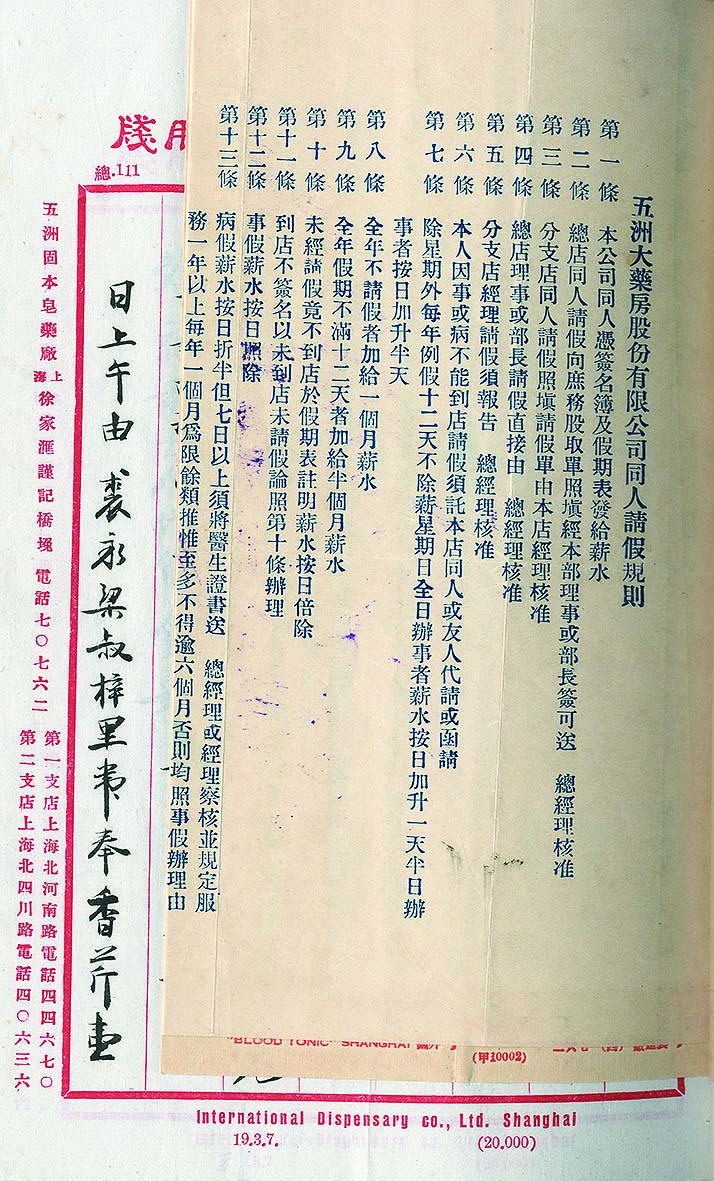 五洲大藥房股份有限公司同人請假規則
第一條 本公司同人憑簽名簿及假期表發給薪水
第二條 總店同人請假向庶務股取單照塡經本部理事或部長簽可送 總經理核准
第三條 分支店同人請假照塡請假單由本店經理核准
第四條 總店理事或部長請假直接由 總經理核准
第五條 分支店經理請假須報告 總經理核准
第六條 本人因事或病不能到店請假須託本店同人或友人代請或函請
第七條 除星期外每年例假十二天不除薪星期日全日辦事者薪水按日加升一天半日辦
事者按日加升半天
第八條 全年不請假者加給一個月薪水
第九條 全年假期不滿十二天者加給半個月薪水
第十條 未經請假竟不到店於假期表註明薪水按日倍除
第十一條 到店不簽名以未到店未請假論照第十條辦理
第十二條 事假薪水按日照除
第十三條 病假薪水按日折半但七日以上須將醫生證書送 總經理或經理察核並規定服
務一年以上每年一個月爲限餘類推惟至多不得逾六個月否則均照事假辦理由
用牋
總.111
日上午由裘永梁叔梓里帶奉香茶壹
五洲固本皂藥廠 上海徐家滙謹記橋堍 電話七〇七六二
第一支店上海北河南路電話四四六七〇
第二支店上海北四川路電話四〇六三六
"BLOOD TONIC" SHANGHAI
(甲10002)
International Dispensary co., Ltd. Shanghai
19.3.7. (20.000)